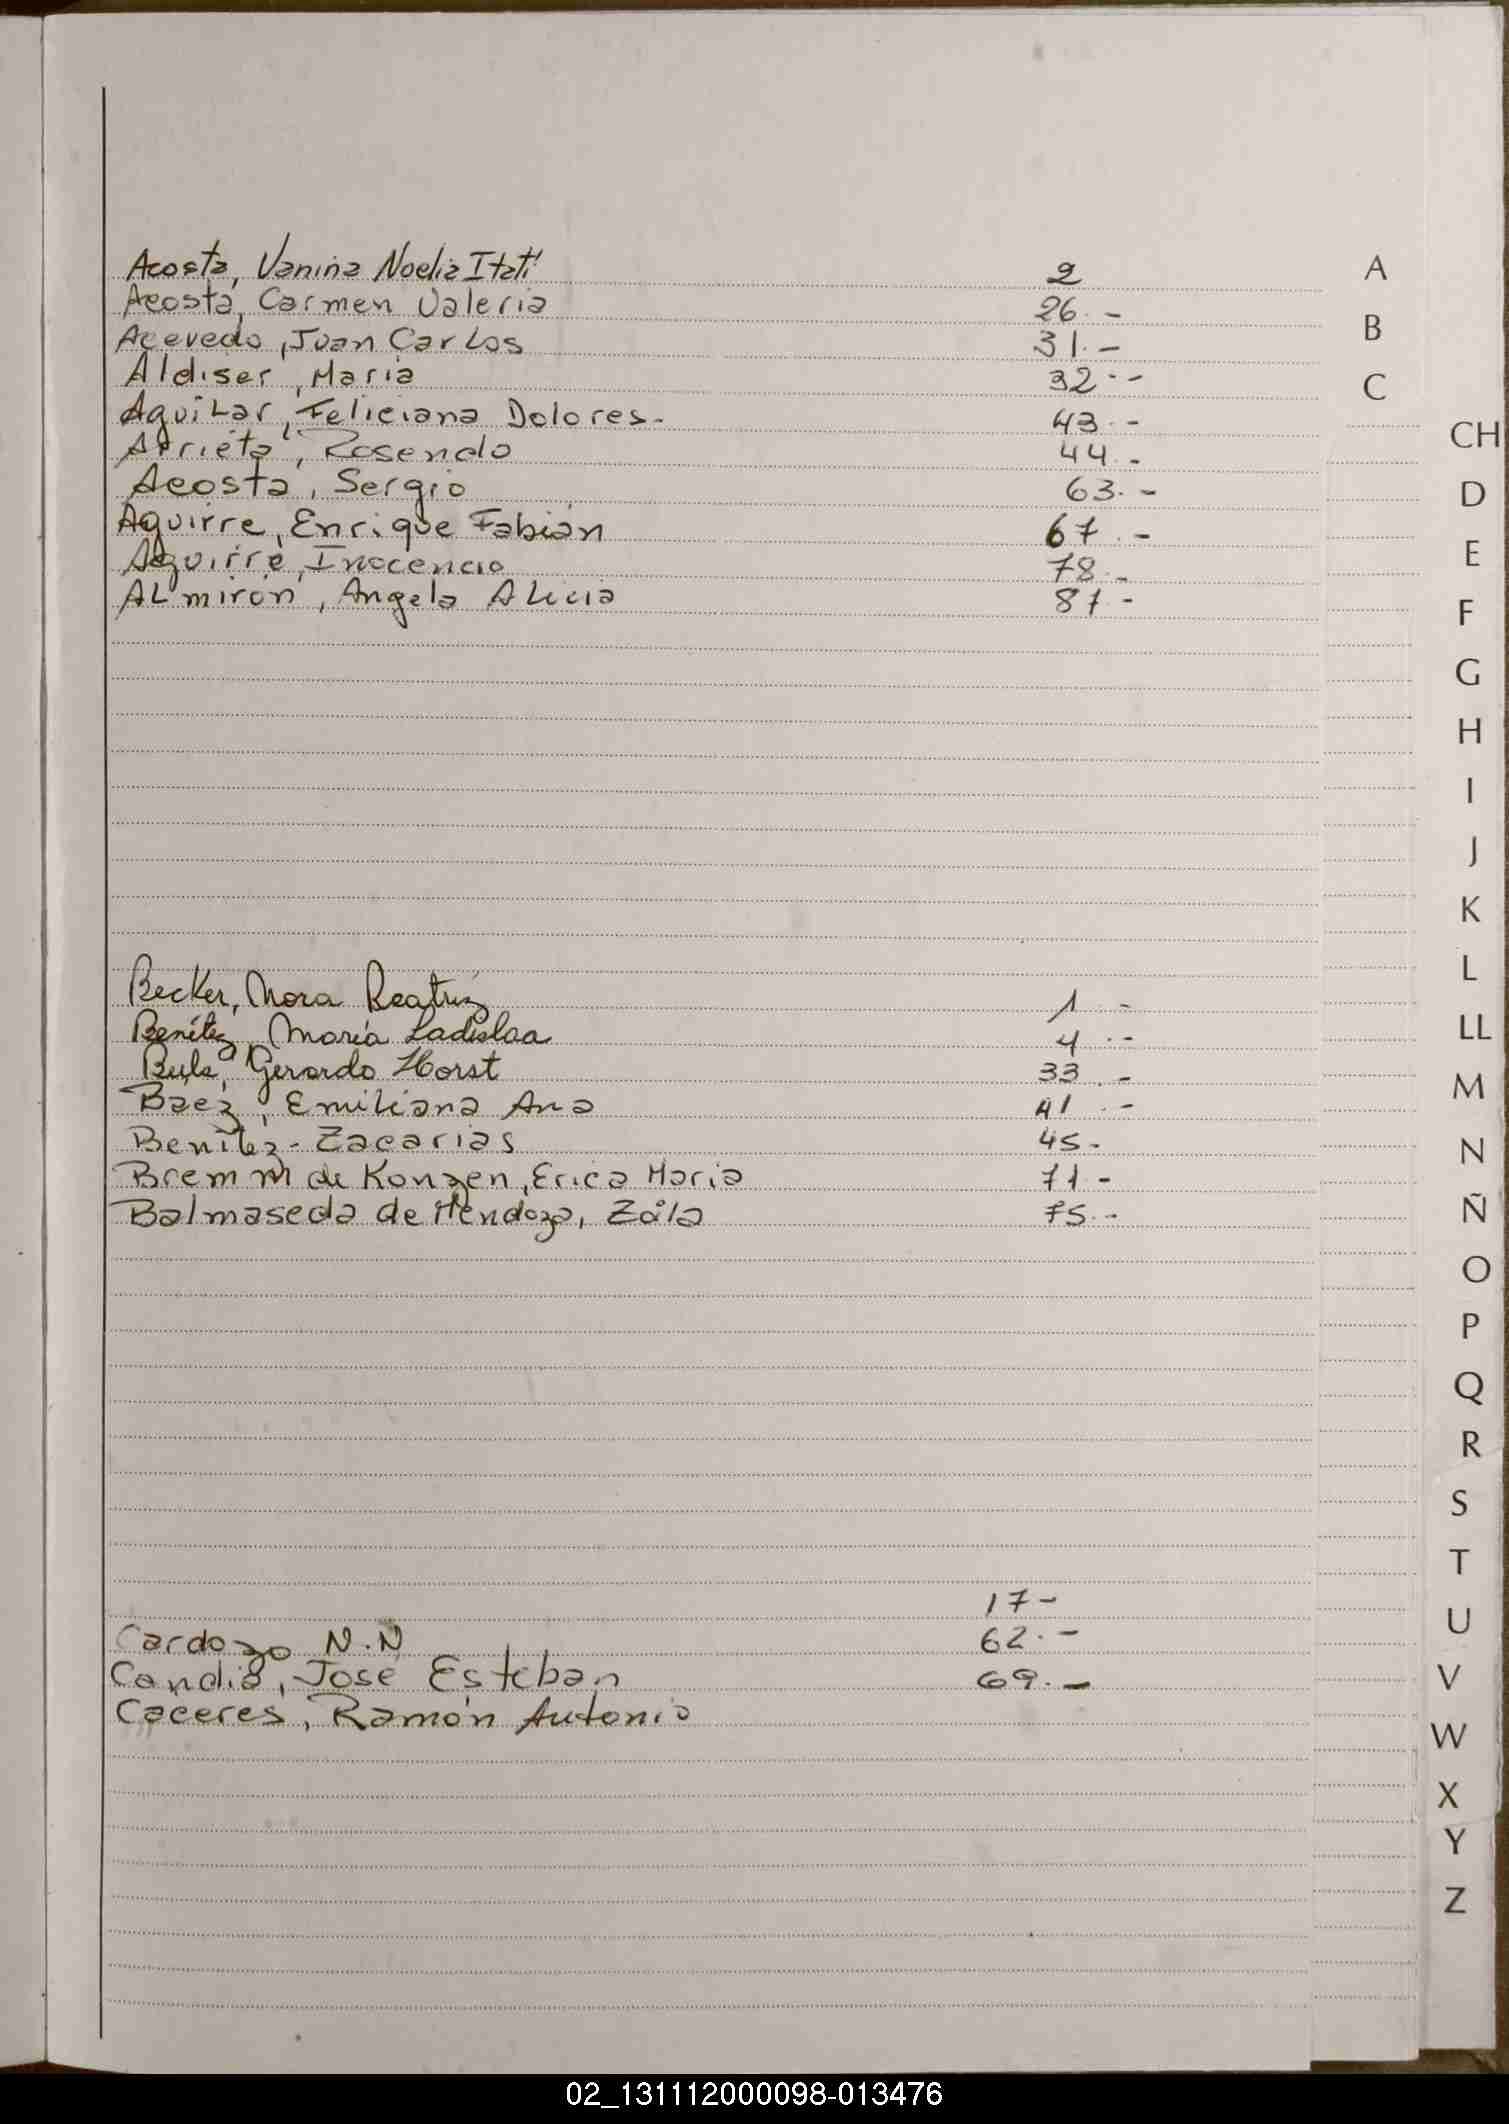 Acosta, Vanina Noelia Itatí 2
Acosta, Carmen Valeria 26.-
Acevedo, Juan Carlos 31.-
Aldiser, Maria 32.-
Aguilar, Feliciana Dolores.- 43.-
Arrieta, Rosendo 44.-
Acosta, Sergio 63.-
Aguirre, Enrique Fabián 67.-
Aguirre, Inocencio 78.-
Almirón, Angela Alicia 87.-
Becker, Nora Beatriz 1.-
Benítez, María Ladislaa 4.-
Gerardo Horst 33.-
Baez, Emiliana Ana 41.-
Benitez- Zacarias 45-
Bremm de Konzen, Erica Maria 71.-
Balmaseda de Mendoza, 75.-
17-
Cardozo N.N 62.-
Candia, José Esteban 69.-
Caceres, Ramón Antonio
A
B
C
CH
D
E
F
G
H
I
J
K
L
LL
M
N
Ñ
O
P
Q
R
S
T
U
V
W
X
Y
Z
02_131112000098-013476